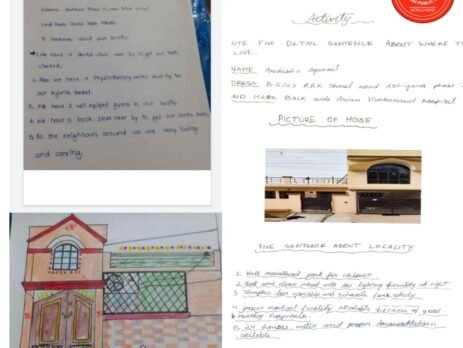 5 Sentences about your locality:
1. We have a dental clinic near by to get our teeth
checked.
2. Also we have a Physiotherapy center near by for
our injuries treated.
3. We have 2 well equiped gyms in our locality.
4. We have a book store near by to get our books from.
5. All the neighbours around us are very loving
and caring.
Activity
ITE FNE DETAIL SENTENCE ABOUT WHERE Y
LIVE.
NAME Agarwal
DRESS B-2/23 road Ashiyana phase
ND MARK BACK side Asian Vivekanand hospital
PICTURE OF HOUSE
FIVE SENTENCE ABOUT LOCALITY
1. Well maintained park for children
2. Neat and clean road with lighting facility at night
3. Temples for worship and schools for study
4. proper medical facility available because of good
nearby hospitals
5. 24 hours water and proper transportation
available